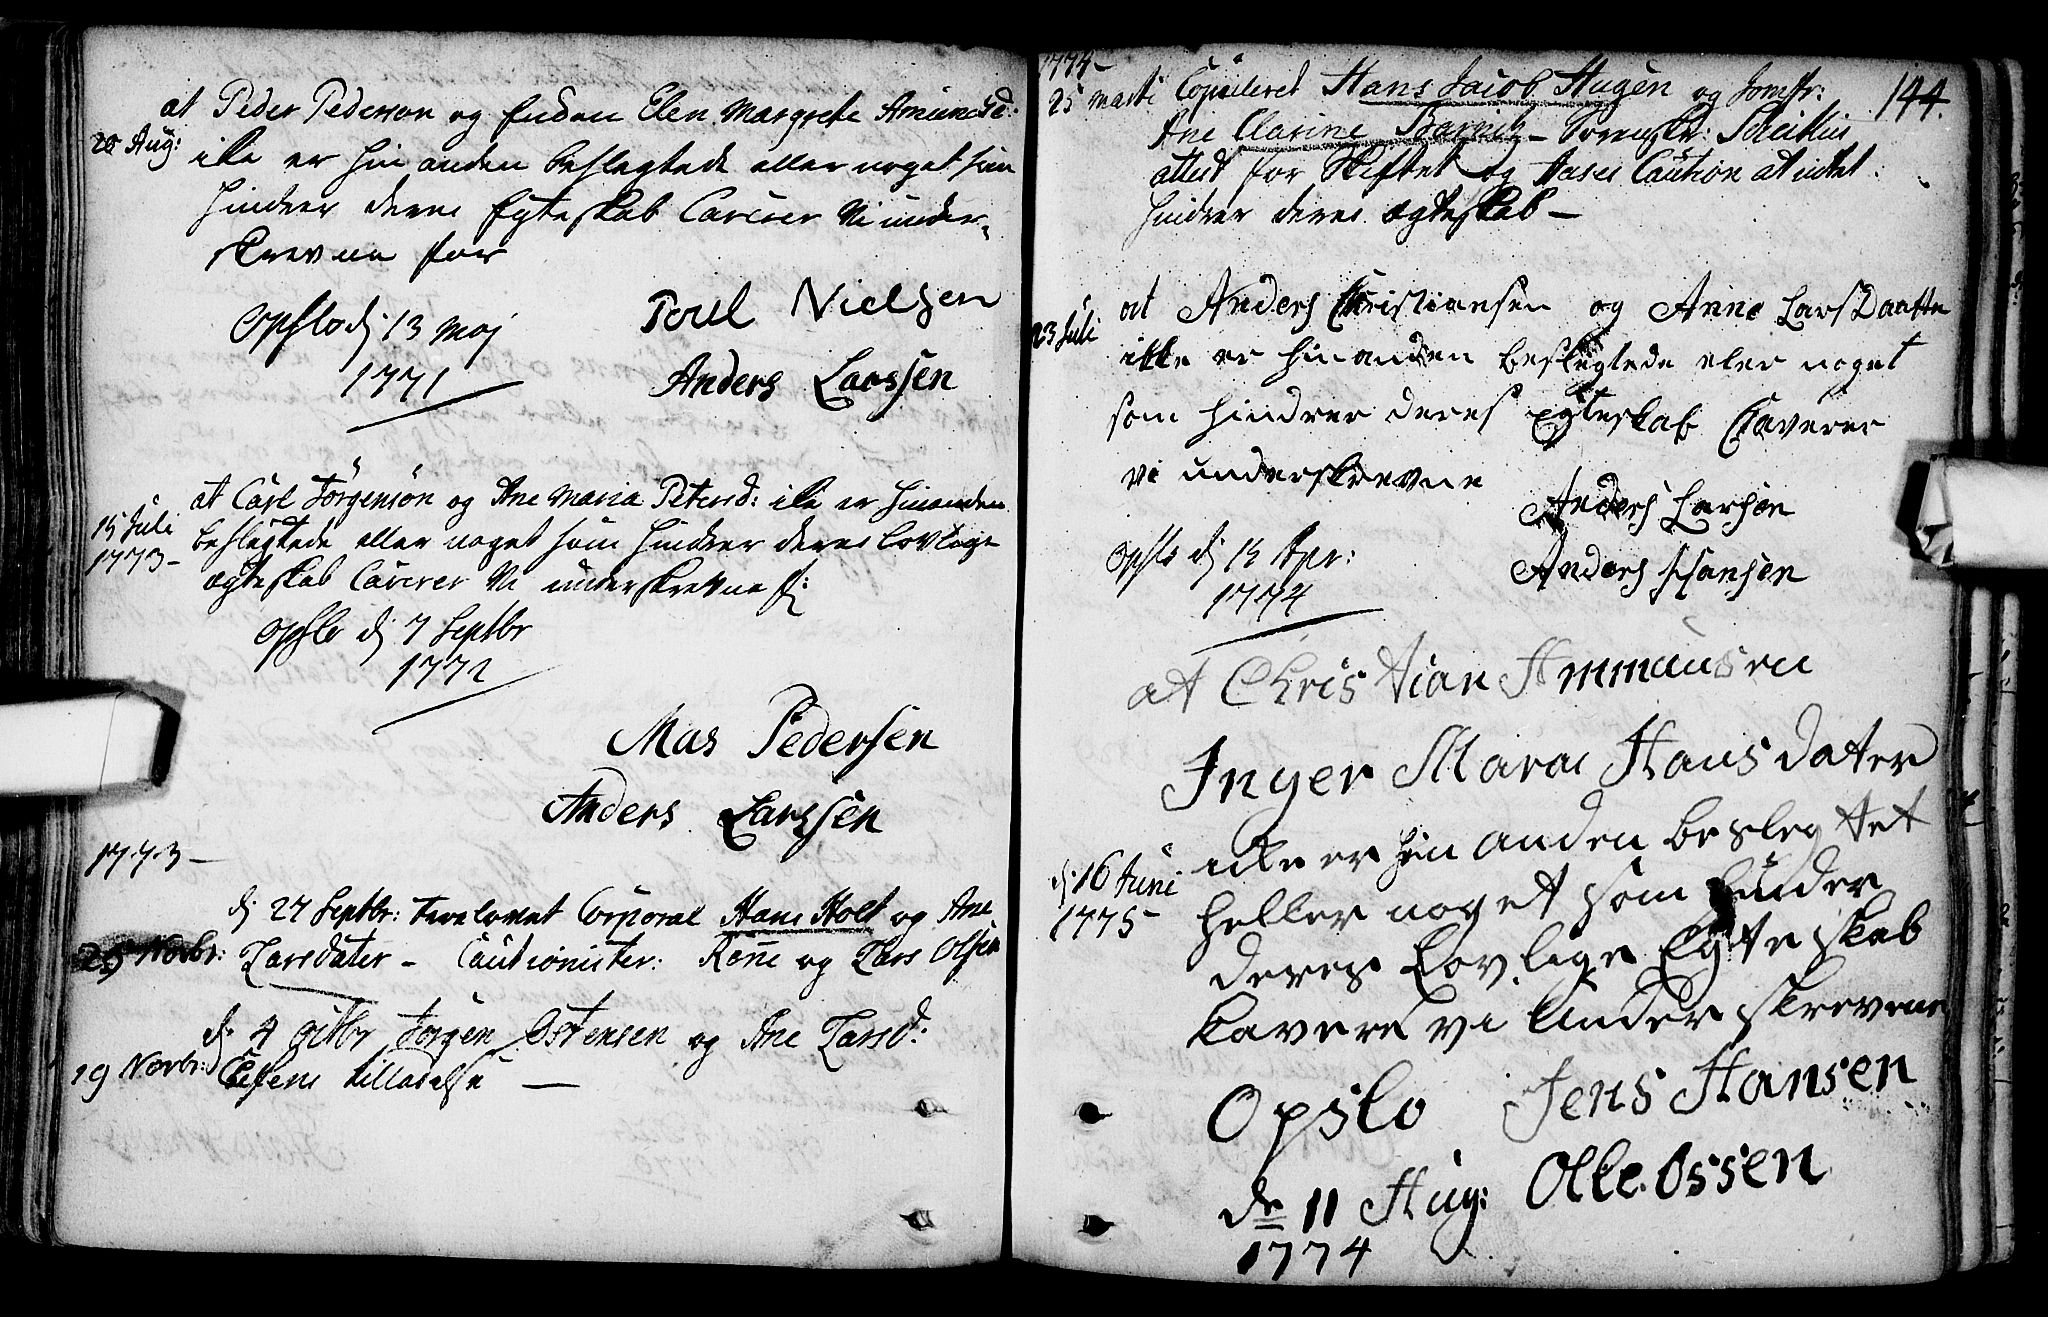 at Peder Pederson og Enken Elen Margrete Amundsd:
20 Aug: ike er hin anden beslegtede eller noget som
hindrer deres Egteskab Caverer Vi under-
skrevne for
Opslo dj 13 Maj Poul Nielsen
1771 Anders Larssen
at Carl Jörgensön og Ane Maria Petersd: ike er hinanden
15 Juli beslegtede eller noget som hindrer deres lovlige
1773- ægteskab Caverer Vi underskrevne
Opslo dj 7 Septbr
1772
Mas Pedersen
Anders Larssen
1773-
dj 27 Septbr: trolovet Corporal Hans Holt og Ane
25 Novbr: Larsdater - Cautionister: Rønne og Lars Olsen
d. 4 octbr Jørgen Ostensen og Ane Larsd:
19 Novbr: Chefens tilladelse —
1774-
25 Marti Copuleret Hans Jacob Stugen og Jomfr: 144.
Ane Clarine - Sorenskr:
attest for Skiftet og Caution at intet
hindrer deres ægteskab -
at Anders Christiansen og Anne LarsDaatte
23 Juli ikke er hinanden beslegtede eler noget
som hindrer deres Egteskab Caverer
vi underskrevne
Anders Larsen
Opslo dj 13 Apr: Anders Hansen
1774
at Christian Ammunsen
Inger Maria Hansdater
d. 16 Juni icke er hin anden beslegtet
1775- heller noget som hinder
deres Lovlige Egteskab
kavere vi Underskrevene
Opslo Jens Hansen
de 11 Aug: Olle Ossen
1774